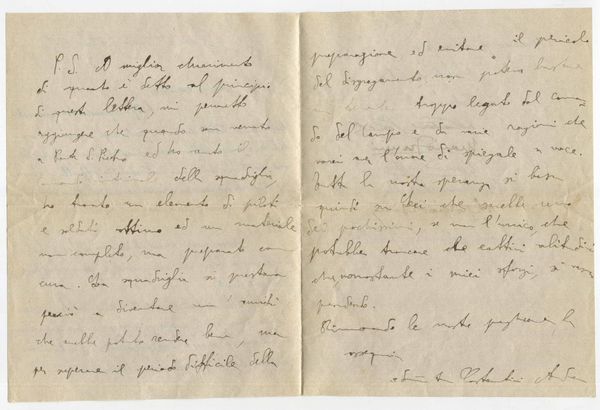 P. S. A miglior chiarimento
di quanto è detto al principio
di questa lettera, mi permetto
aggiungere che quando son venuto
a Ponte S. Pietro ed ho avuto il
della squadriglia,
ho trovato un elemento di piloti
e soldati ottimo ed un materiale
non completo, ma preparato con
cura. La squadriglia si prestava
perciò a diventare un'unità
che avrebbe potuto rendere bene, ma
per superare il periodo difficile della
preparazione ed evitare il pericolo
del disgregamento, non potevo
troppo legato dal coman
do del campo e da varie ragioni che
vorrei aver l'onore di spiegarle a voce.
Tutta la nostra speranza si basa
quindi su Lei che sarebbe uno
dei pochissimi, se non l'unico che
potrebbe troncare che cattive abitudini
che, nonostante i miei sforzi, si vanno
prendendo.
Rinnovando le nostre preghiere, la
ossequio